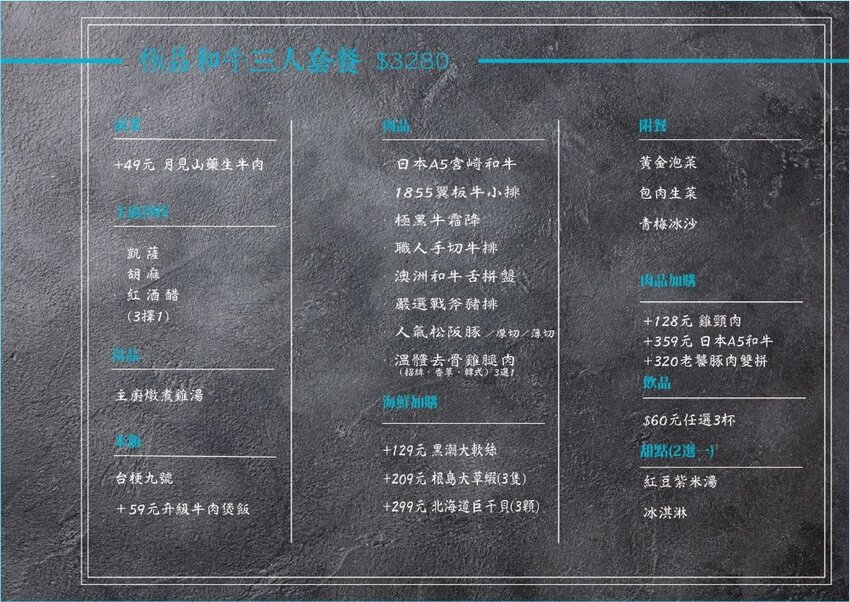 極品和牛三人套餐 $3280
前菜
+49元 月見山藥生牛肉
凱薩
胡麻
紅酒醋
(3擇1)
湯品
主廚燉煮雞湯
米飯
台梗九號
+59元升級牛肉煲飯
肉品
日本A5宮崎和牛
1855翼板牛小排
極黑牛霜降
職人手切牛排
澳洲和牛舌拼盤
嚴選戰斧豬排
人氣松阪豚 /厚切/薄切
溫體去骨雞腿肉
(招牌.香草.韓式)3選1
海鮮加購
+129元 黑潮大軟絲
+209元 根島大草蝦(3隻)
+299元 北海道巨干貝(3顆)
附餐
黃金泡菜
包肉生菜
青梅冰沙
肉品加購
+128元 雞頸肉
+359元 日本A5和牛
+320老饕豚肉雙拼
飲品
$60元任選3杯
甜點(2選一)
紅豆紫米湯
冰淇淋